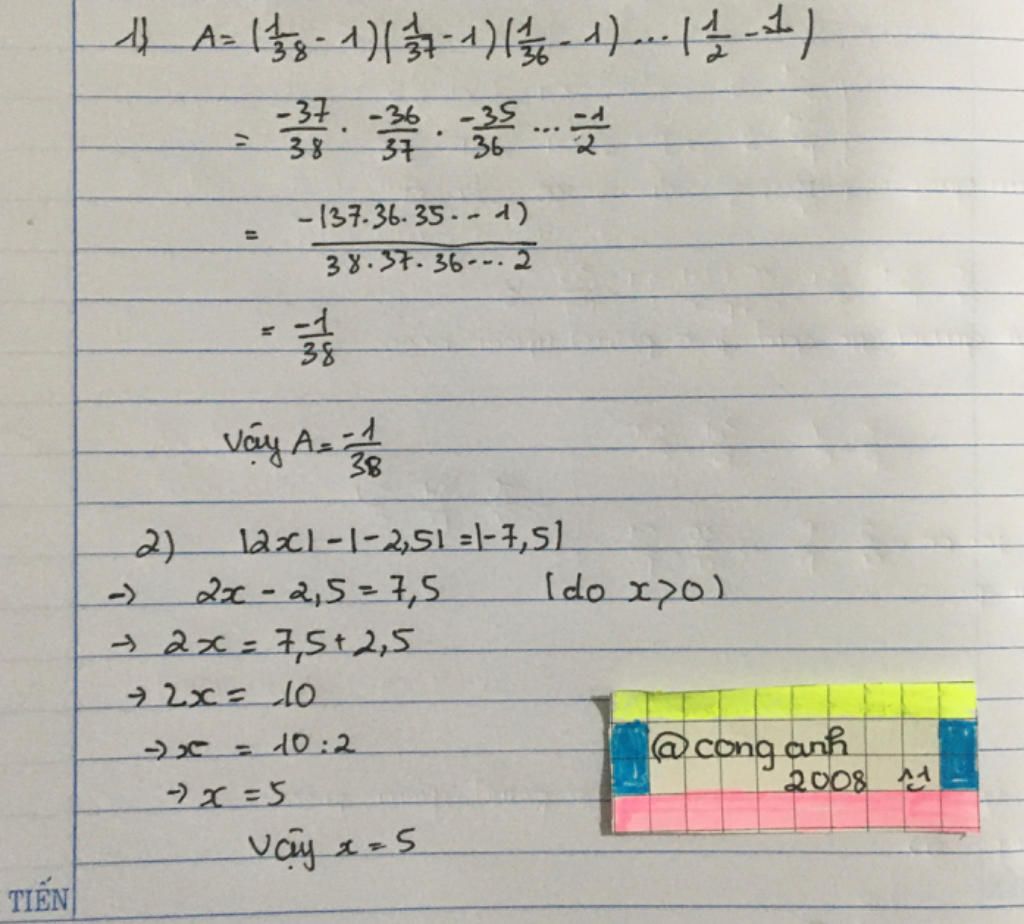 1) A = (1/38 - 1)(1/37 - 1)(1/36 - 1) ... (1/2 - 1)
= -37/38 . -36/37 . -35/36 ... -1/2
= -(37.36.35...1) / 38.37.36...2
= -1/38
Vậy A = -1/38
2) |2x| - |-2,5| = |-7,5|
→ 2x - 2,5 = 7,5 (do x>0)
→ 2x = 7,5 + 2,5
→ 2x = 10
→ x = 10:2
→ x = 5
Vậy x = 5
@cong anh
2008
TIẾN